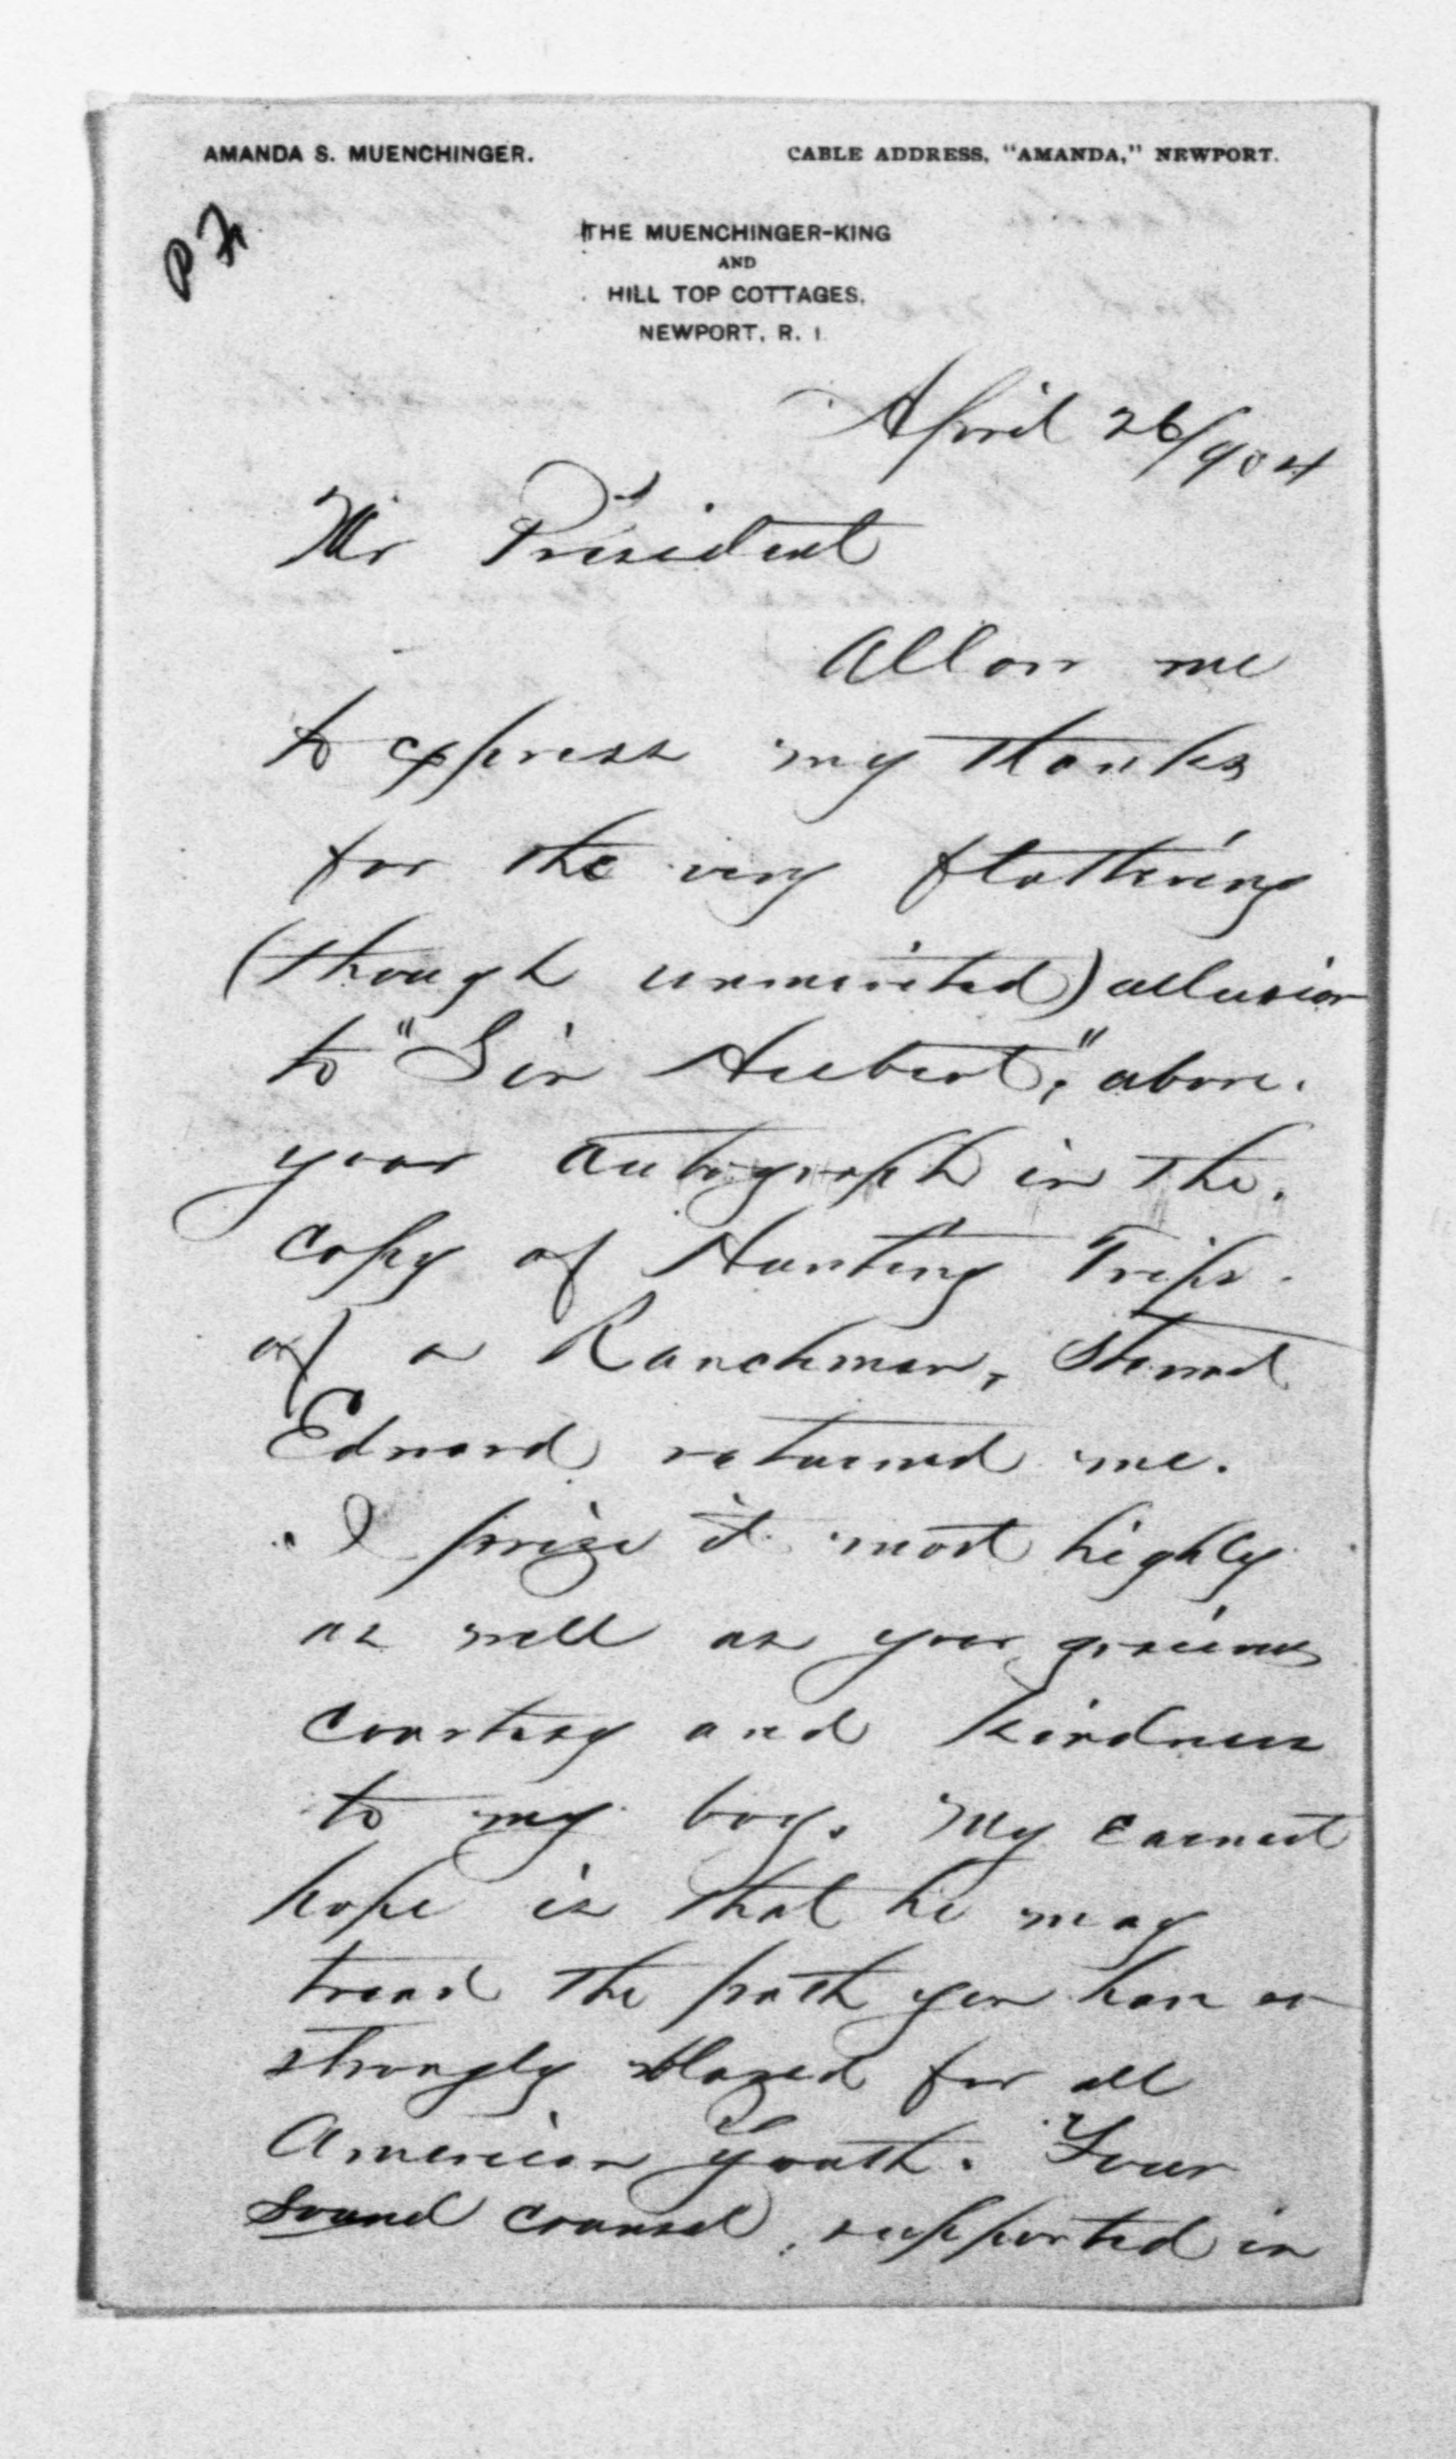 AMANDA S. MUENCHINGER.
CABLE ADDRESS, "AMANDA," NEWPORT.
P F
THE MUENCHINGER-KING
AND
HILL TOP COTTAGES,
NEWPORT, R. I.
April 26/904
Mr President
Allow me
to express my thanks
for the very flattering
(though unmerited) allusion
to "Sir Hubert," above
your autograph in the
copy of Hunting Trips
of a Ranchman,
Edward returned me.
I prize it most highly
as well as your gracious
courtesy and kindness
to my boy. My earnest
hope is that he may
tread the path you have so
strongly blazed for all
American Youth. Your
sound counsel, supported in